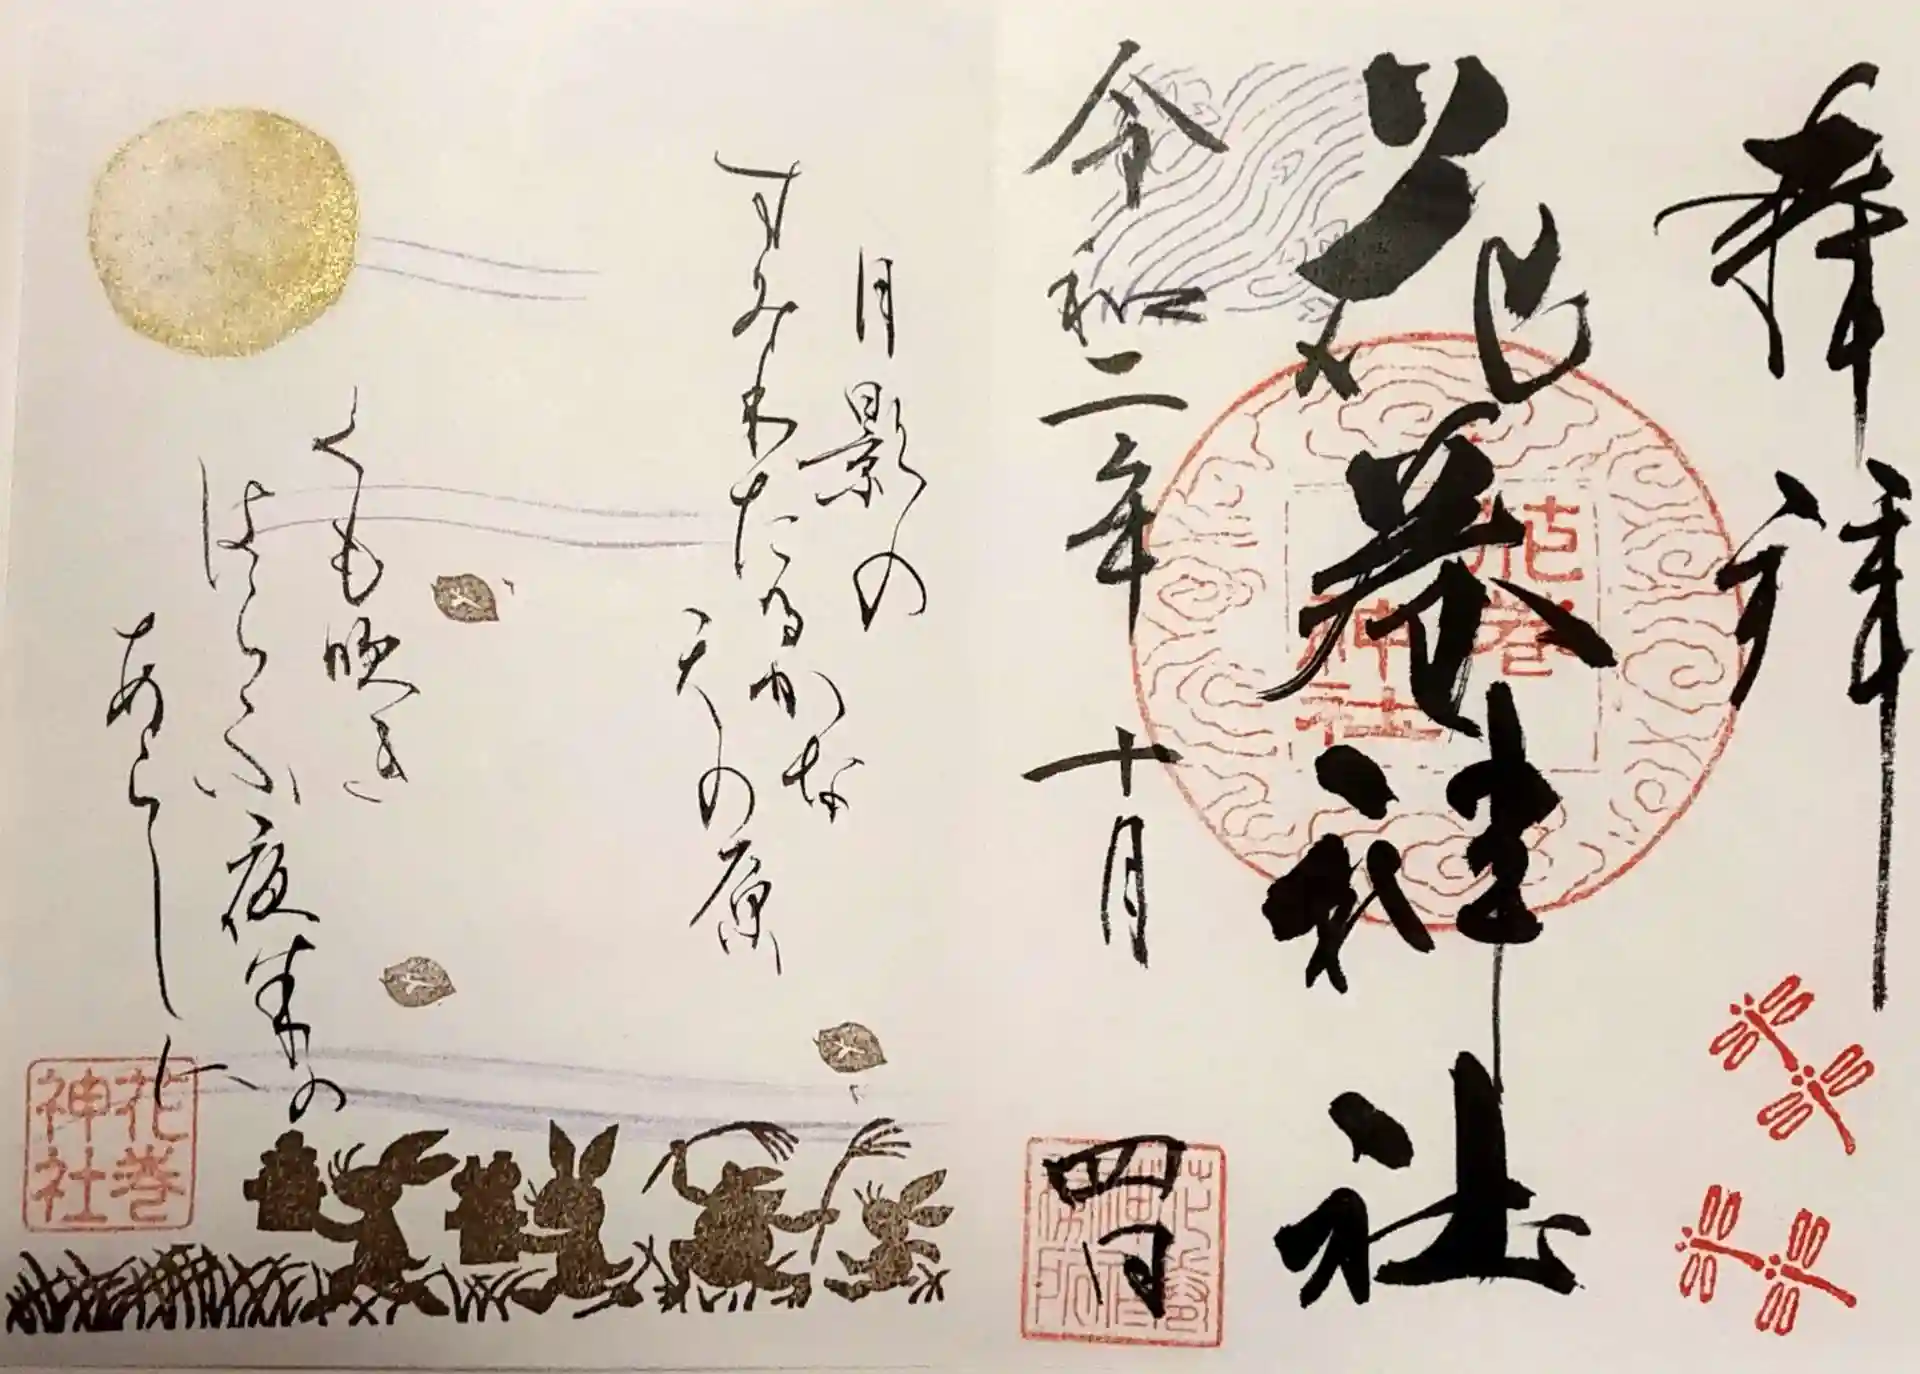 奉拝
花巻神社
花巻神社
令和二年十月四日
月影の
すみわたるかな
天の原
くも吹き
はらふ夜半の
あらしに
花巻神社